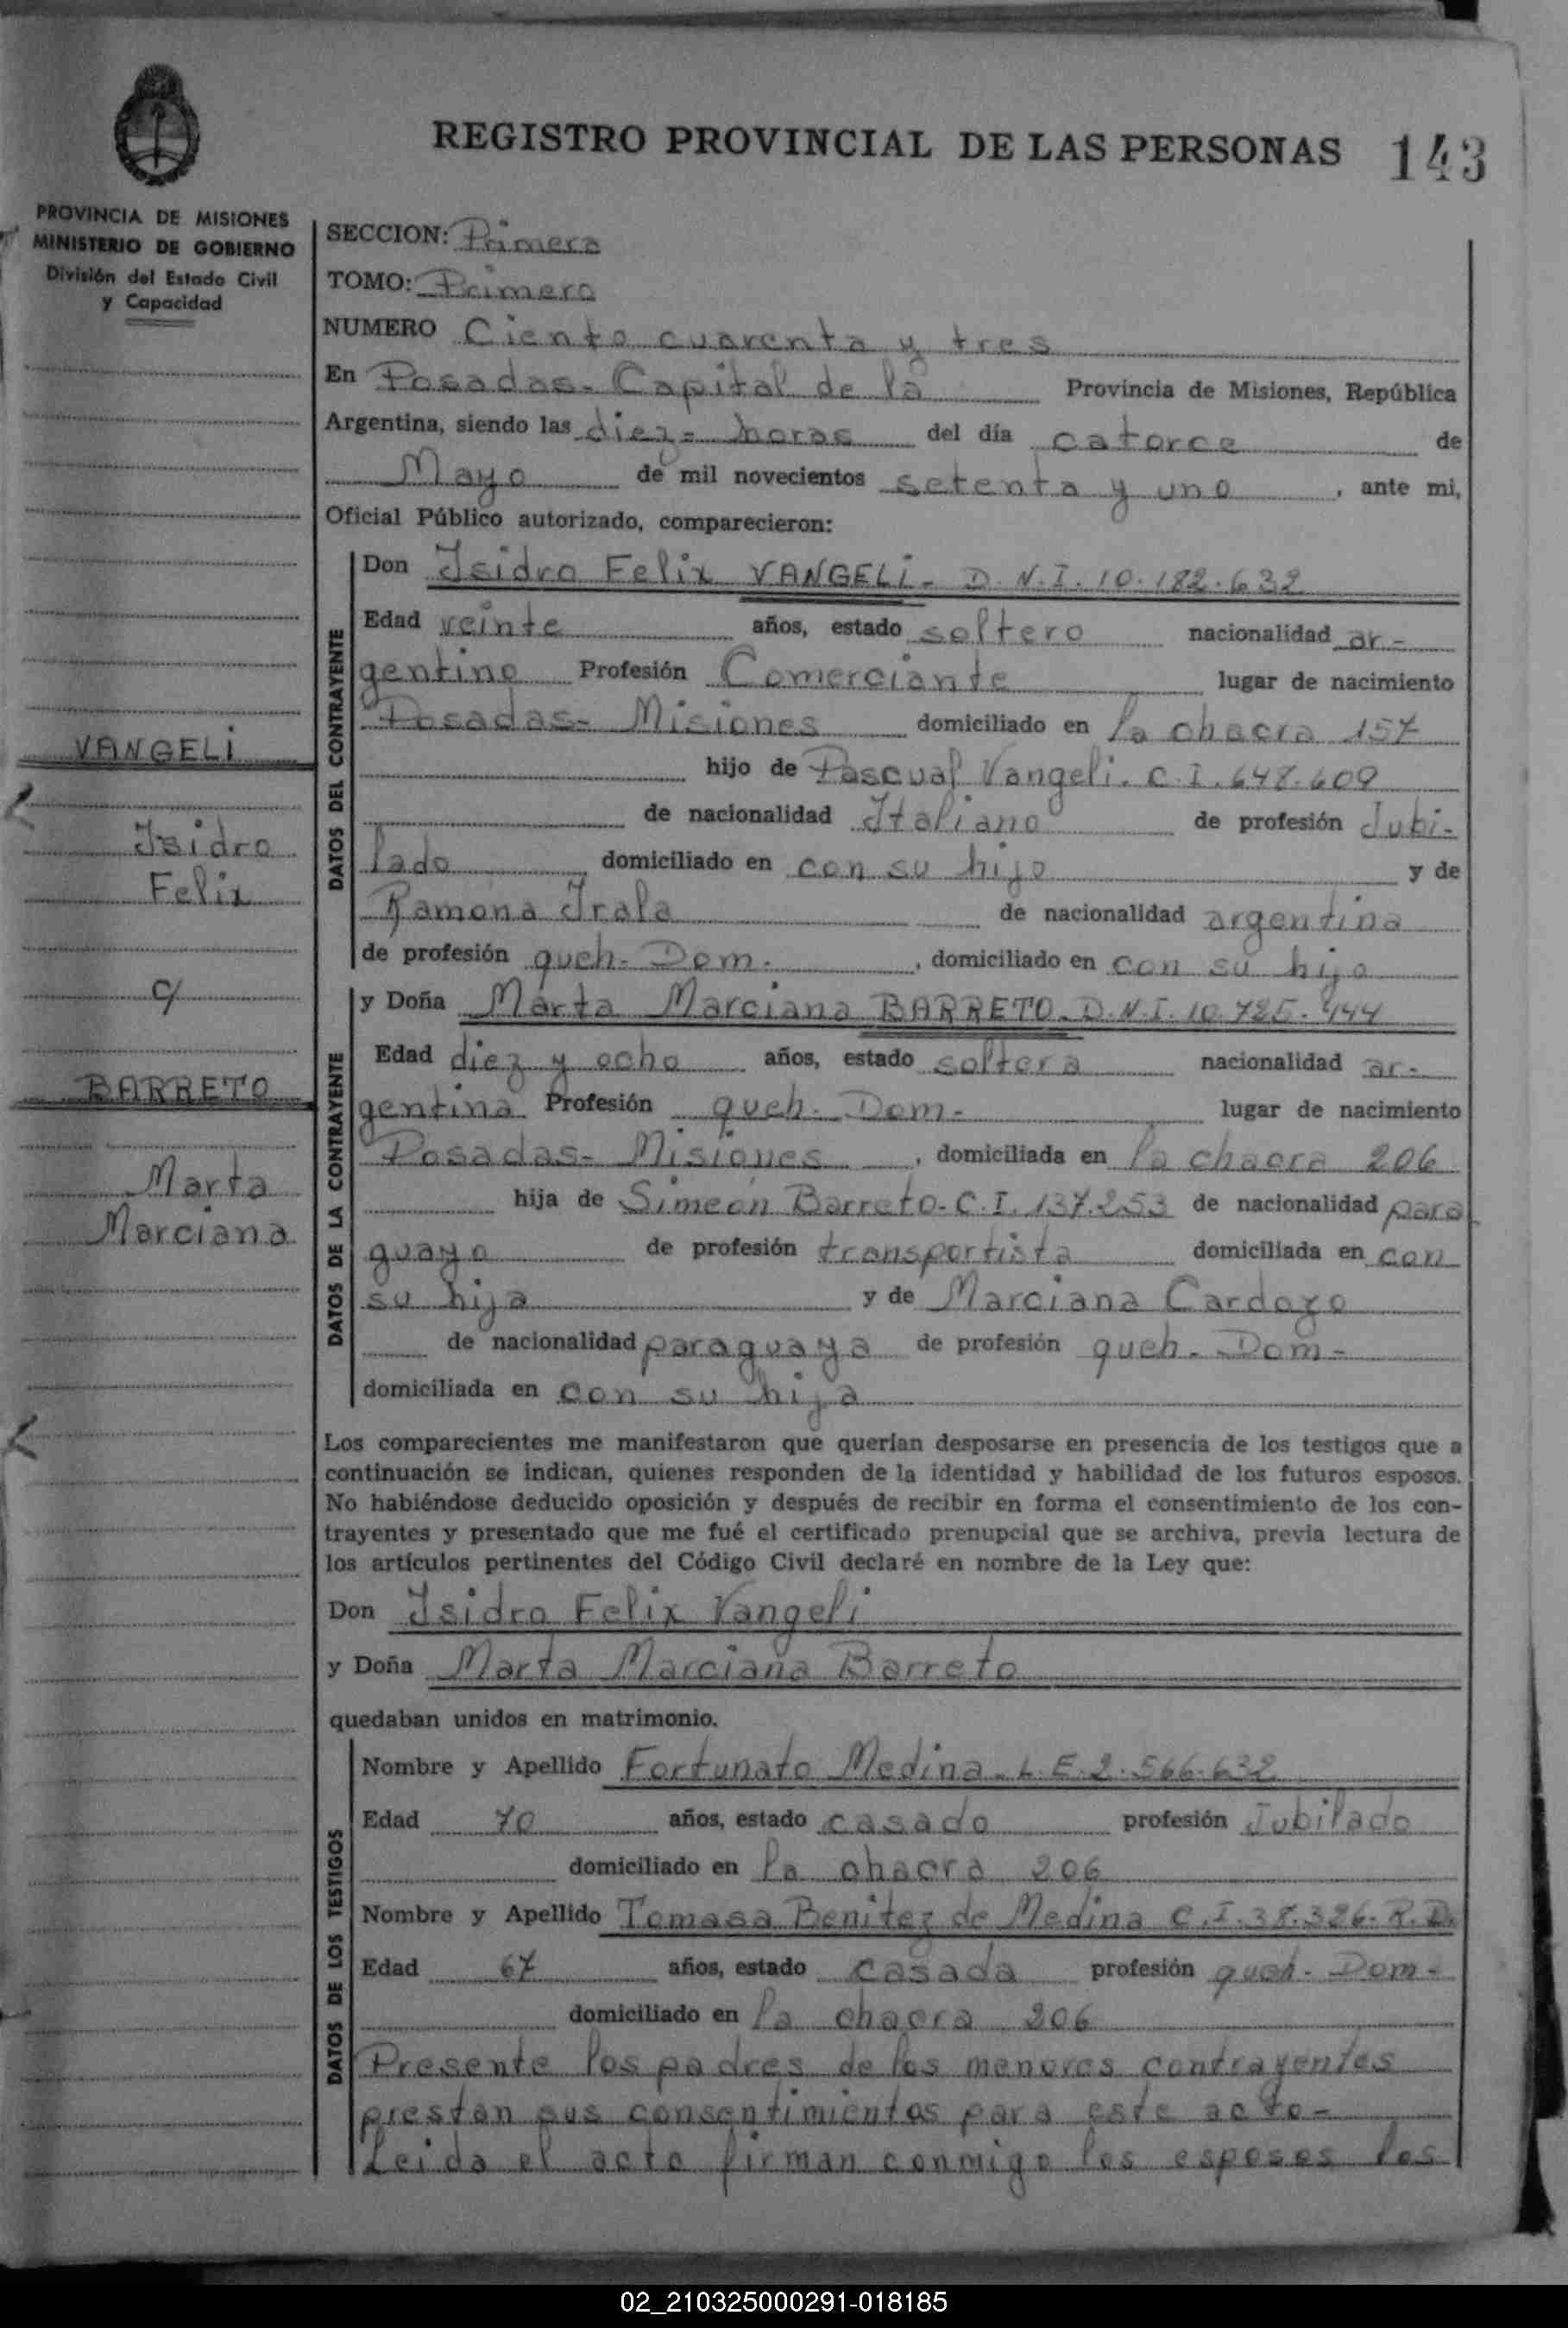 REGISTRO PROVINCIAL DE LAS PERSONAS 143
PROVINCIA DE MISIONES
MINISTERIO DE GOBIERNO
División del Estado Civil
y Capacidad
VANGELI
Isidro
Felix
c/
BARRETO
Marta
Marciana
SECCION: Primera
TOMO: Primero
NUMERO Ciento cuarenta y tres
En Posadas- Capital de la Provincia de Misiones, República
Argentina, siendo las diez- horas del día catorce de
Mayo de mil novecientos setenta y uno, ante mi,
Oficial Público autorizado, comparecieron:
DATOS DEL CONTRAYENTE
Don Isidro Felix VANGELI- D.N.I. 10.182.632
Edad veinte años, estado soltero nacionalidad ar-
gentino Profesión Comerciante lugar de nacimiento
Posadas- Misiones domiciliado en la chacra 157
hijo de Pascual Vangeli. C.I. 648.609
de nacionalidad Italiano de profesión Jubi-
lado domiciliado en con su hijo y de
Ramona Irala de nacionalidad argentina
de profesión queh- Dom-, domiciliado en con su hijo
DATOS DE LA CONTRAYENTE
y Doña Marta Marciana BARRETO- D.N.I. 10.725.444
Edad diez y ocho años, estado soltera nacionalidad ar-
gentina Profesión queh- Dom- lugar de nacimiento
Posadas- Misiones, domiciliada en la chacra 206
hija de Simeón Barreto- C.I. 137.253 de nacionalidad para
guayo de profesión transportista domiciliada en con
su hija y de Marciana Cardozo
de nacionalidad paraguaya de profesión queh- Dom-
domiciliada en con su hija
Los comparecientes me manifestaron que querían desposarse en presencia de los testigos que a
continuación se indican, quienes responden de la identidad y habilidad de los futuros esposos.
No habiéndose deducido oposición y después de recibir en forma el consentimiento de los con-
trayentes y presentado que me fué el certificado prenupcial que se archiva, previa lectura de
los artículos pertinentes del Código Civil declaré en nombre de la Ley que:
Don Isidro Felix Vangeli
y Doña Marta Marciana Barreto
quedaban unidos en matrimonio.
DATOS DE LOS TESTIGOS
Nombre y Apellido Fortunato Medina- L.E. 2.566.632
Edad 70 años, estado casado profesión Jubilado
domiciliado en la chacra 206
Nombre y Apellido Tomasa Benitez de Medina C.I. 38.326- R.D.
Edad 67 años, estado casada profesión queh- Dom-
domiciliado en la chacra 206
Presente los padres de los menores contrayentes
prestan sus consentimientos para este acto-
Leida el acta firman conmigo los esposos los
02_210325000291-018185